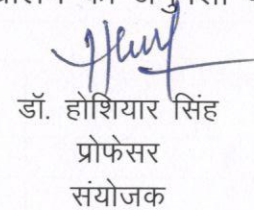 डॉ. होशियार सिंह
प्रोफेसर
संयोजक